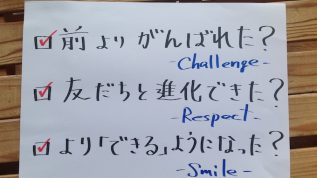 ☑ 前よりがんばれた?
-Challenge-
☑ 友だちと進化できた?
-Respect-
☑ より「できる」ようになった?
-Smile-